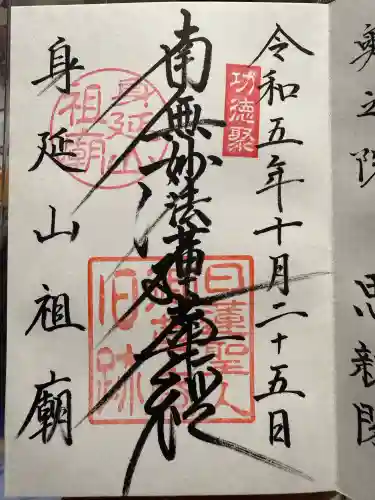 令和五年十月二十五日
功徳聚
南無妙法蓮華経
日蓮聖人
旧跡
身延山
祖廟
身延山祖廟
奥之院
思親閣